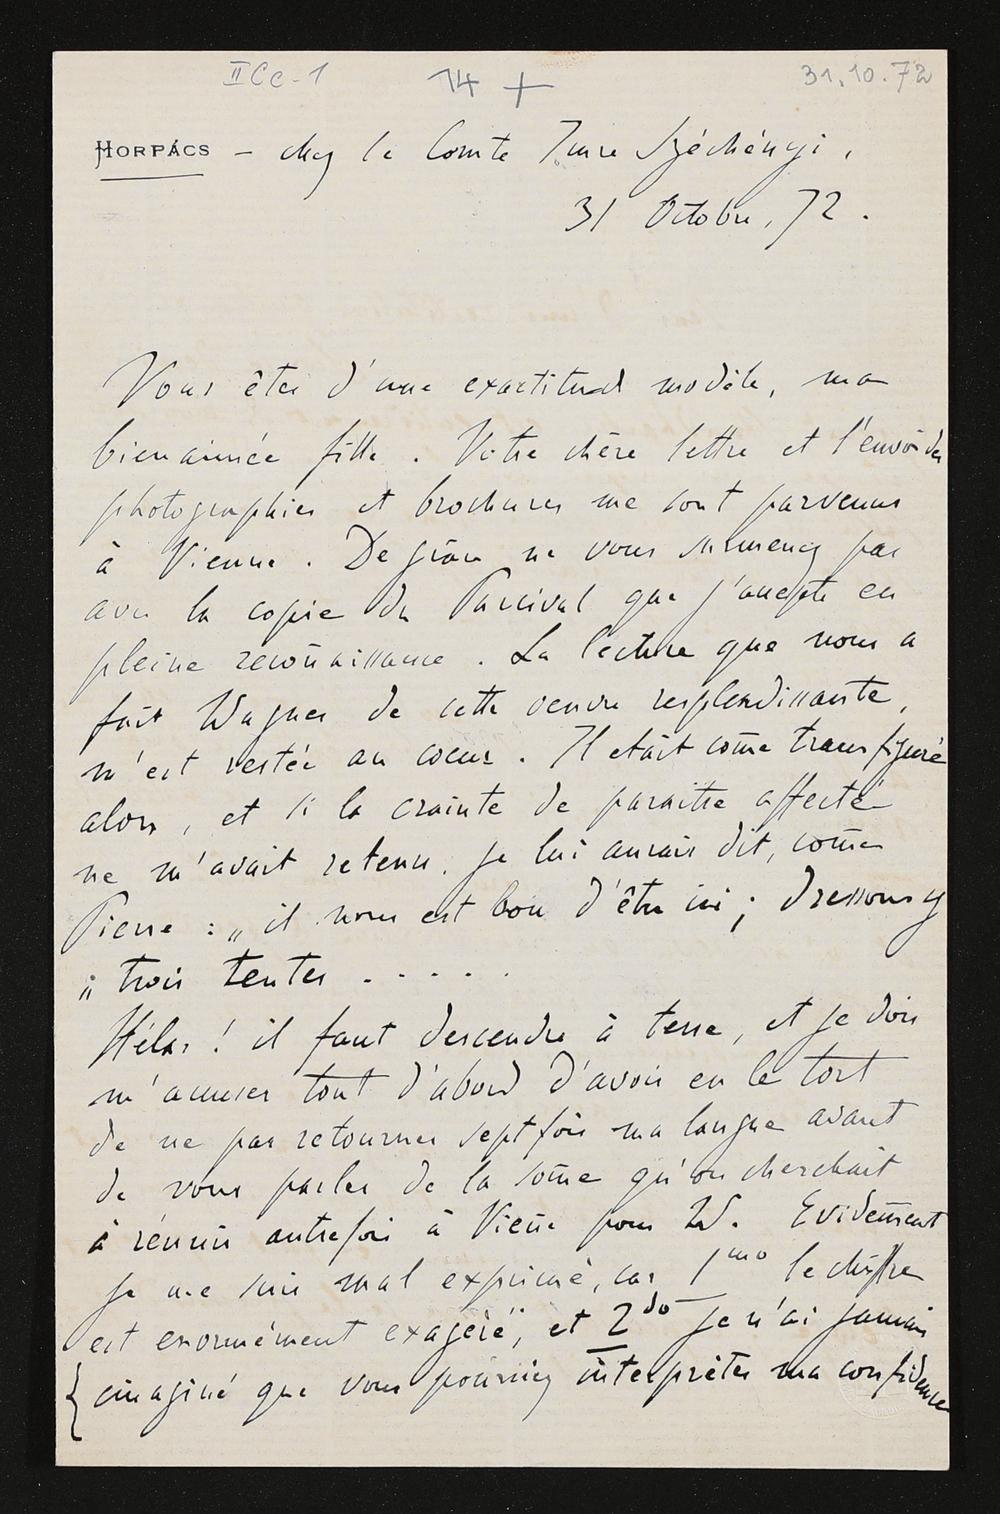 IICc-1 74 + 31.10.72
HORPÁCS – chez le Comte Imre Széchényi,
31 Octobre, 72.
Vous êtes d'une exactitude modèle, ma
bienaimée fille. Votre chère lettre et l'envoi des
photographies et brochures me sont parvenus
à Vienne. De grâce ne vous surmenez pas
avec la copie du Parcival que j'accepte en
pleine recoñaissance. La lecture que nous a
fait Wagner de cette oeuvre resplendissante,
m'est restée au coeur. Il etait com̄e transfiguré
alors, et si la crainte de paraitre affecté
ne m'avait retenu, je lui aurais dit, com̄e
Pierre : „il nous est bon d'être ici ; dressons y
„trois tentes . . . . .
Hélas ! il faut descendre à terre, et je dois
m'accuser tout d'abord d'avoir eu le tort
de ne pas retourner sept fois ma langue avant
de vous parler de la som̄e qu'on cherchait
à réunir autrefois à Vieñe pour W. Evidem̄ent
je me suis mal exprimé, car 1mo le chiffre
est enormément exagéré, et 2do je n'ai jamais
imaginé que vous pourriez interpréter ma confidence